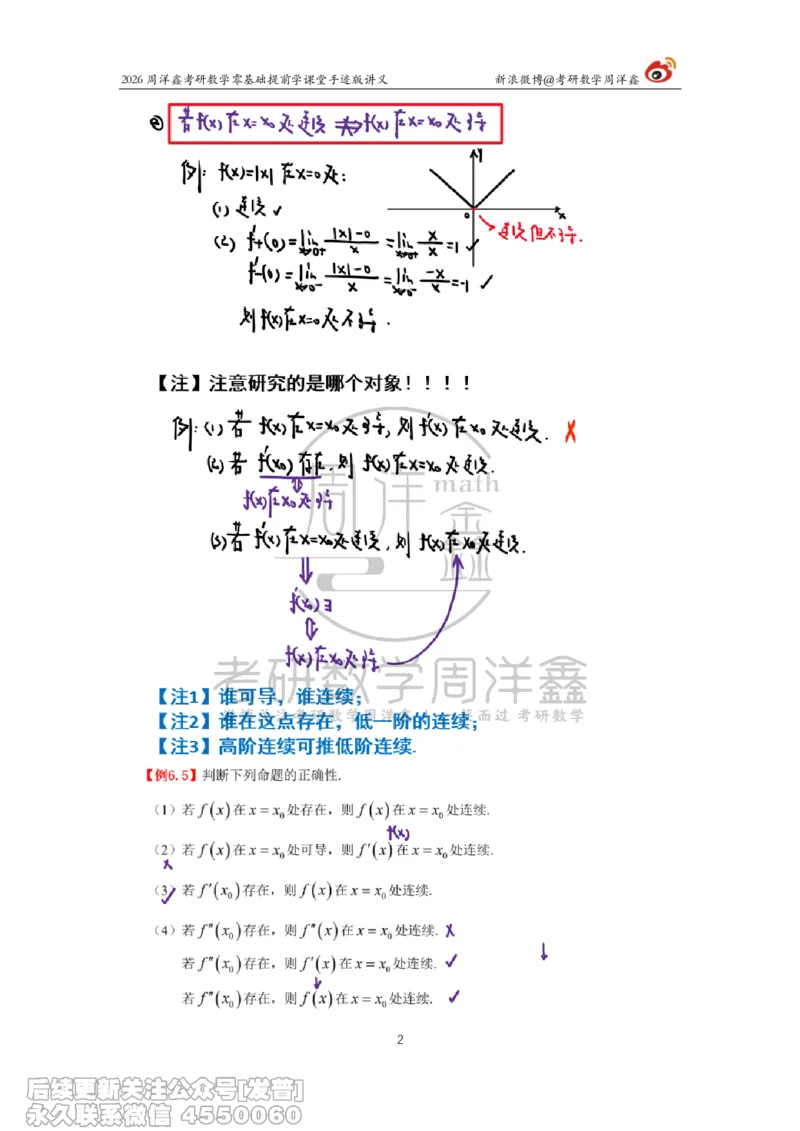 2026 周洋鑫考研数学零基础提前学课堂手迹版讲义 新浪微博@考研数学周洋鑫
② 若f(x)在x=x₀处连续 ⇏ f(x)在x=x₀处可导
例: f(x)=|x| 在x=0处:
(1) 连续 ✓
(2) f'₊(0)=lim_{x→0⁺} (|x|-0)/x =lim_{x→0⁺} x/x =1 ✓
f'₋(0)=lim_{x→0⁻} (|x|-0)/x =lim_{x→0⁻} (-x)/x =-1 ✓
则 f(x)在x=0处不可导.
y
0
x
连续但不可导.
【注】注意研究的是哪个对象！！！！
例: (1) 若 f(x)在x=x₀处可导, 则 f'(x)在x₀处连续. ✗
(2) 若 f'(x₀)存在, 则 f(x)在x=x₀处连续.
⇕
f(x)在x₀处可导
(3) 若 f'(x)在x=x₀处连续, 则 f(x)在x₀处连续.
⇓
f'(x₀)∃
⇕
f(x)在x₀处可导
周洋鑫
math
考研数学周洋鑫
【注1】谁可导，谁连续；
【注2】谁在这点存在，低一阶的连续；
【注3】高阶连续可推低阶连续.
【例6.5】判断下列命题的正确性.
（1）若 f(x) 在 x = x₀ 处存在，则 f(x) 在 x = x₀ 处连续.
f(x)
（2）若 f(x) 在 x = x₀ 处可导，则 f'(x) 在 x = x₀ 处连续.
✗
（3）若 f'(x₀) 存在，则 f(x) 在 x = x₀ 处连续. ✓
（4）若 f"(x₀) 存在，则 f"(x) 在 x = x₀ 处连续. ✗
若 f"(x₀) 存在，则 f'(x) 在 x = x₀ 处连续. ✓
若 f"(x₀) 存在，则 f(x) 在 x = x₀ 处连续. ✓
2
后续更新关注公众号[发普]
永久联系微信 4550060